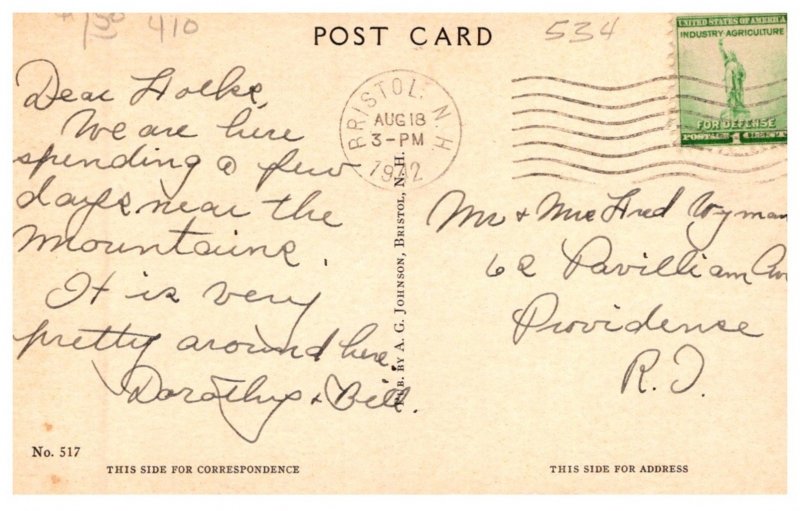 1.50 410
POST CARD
534
UNITED STATES OF AMERICA
INDUSTRY·AGRICULTURE
FOR DEFENSE
POSTAGE 1 CENTS
BRISTOL, N.H.
AUG 18
3-PM
1942
Dear Folks,
We are here
spending a few
days near the
mountains.
It is very
pretty around here.
Dorothy & Bill.
PUB. BY A. G. JOHNSON, BRISTOL, N. H.
Mr & Mrs Fred Wyman
62 Pavilliam Av
Providense
R.I.
No. 517
THIS SIDE FOR CORRESPONDENCE
THIS SIDE FOR ADDRESS